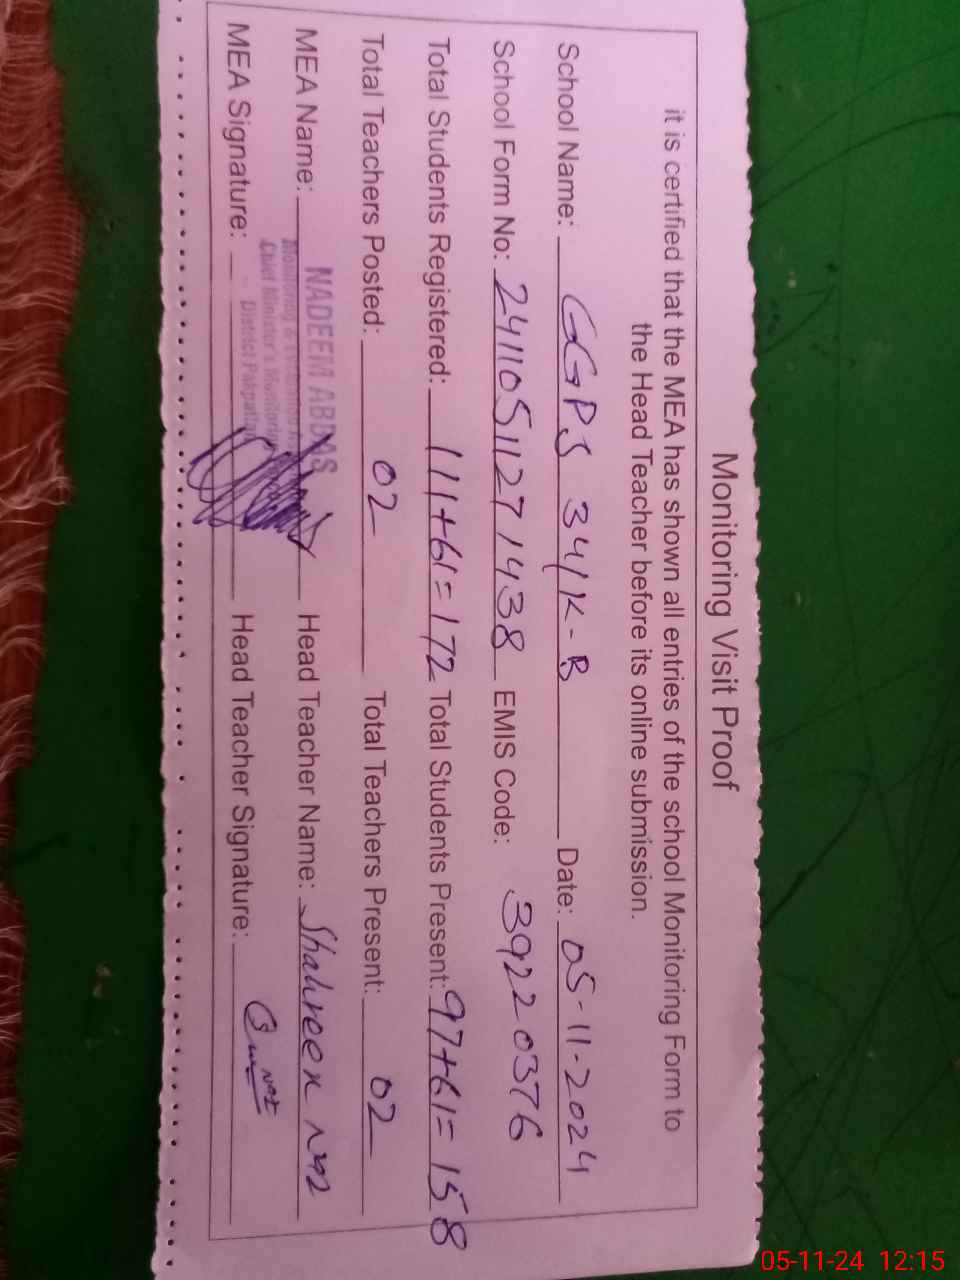 Monitoring Visit Proof
it is certified that the MEA has shown all entries of the school Monitoring Form to
the Head Teacher before its online submission.
School Name: GGPS 34/K-B Date: 05-11-2024
School Form No: 2411051127 1438 EMIS Code: 39220376
Total Students Registered: 111+61=172 Total Students Present: 97+61=158
Total Teachers Posted: 02 Total Teachers Present: 02
MEA Name: NADEEM ABBAS Head Teacher Name: Shahreen
Monitoring &
Chief Minister's Monitoring
District Pakpattan
MEA Signature: Head Teacher Signature:
05-11-24 12:15